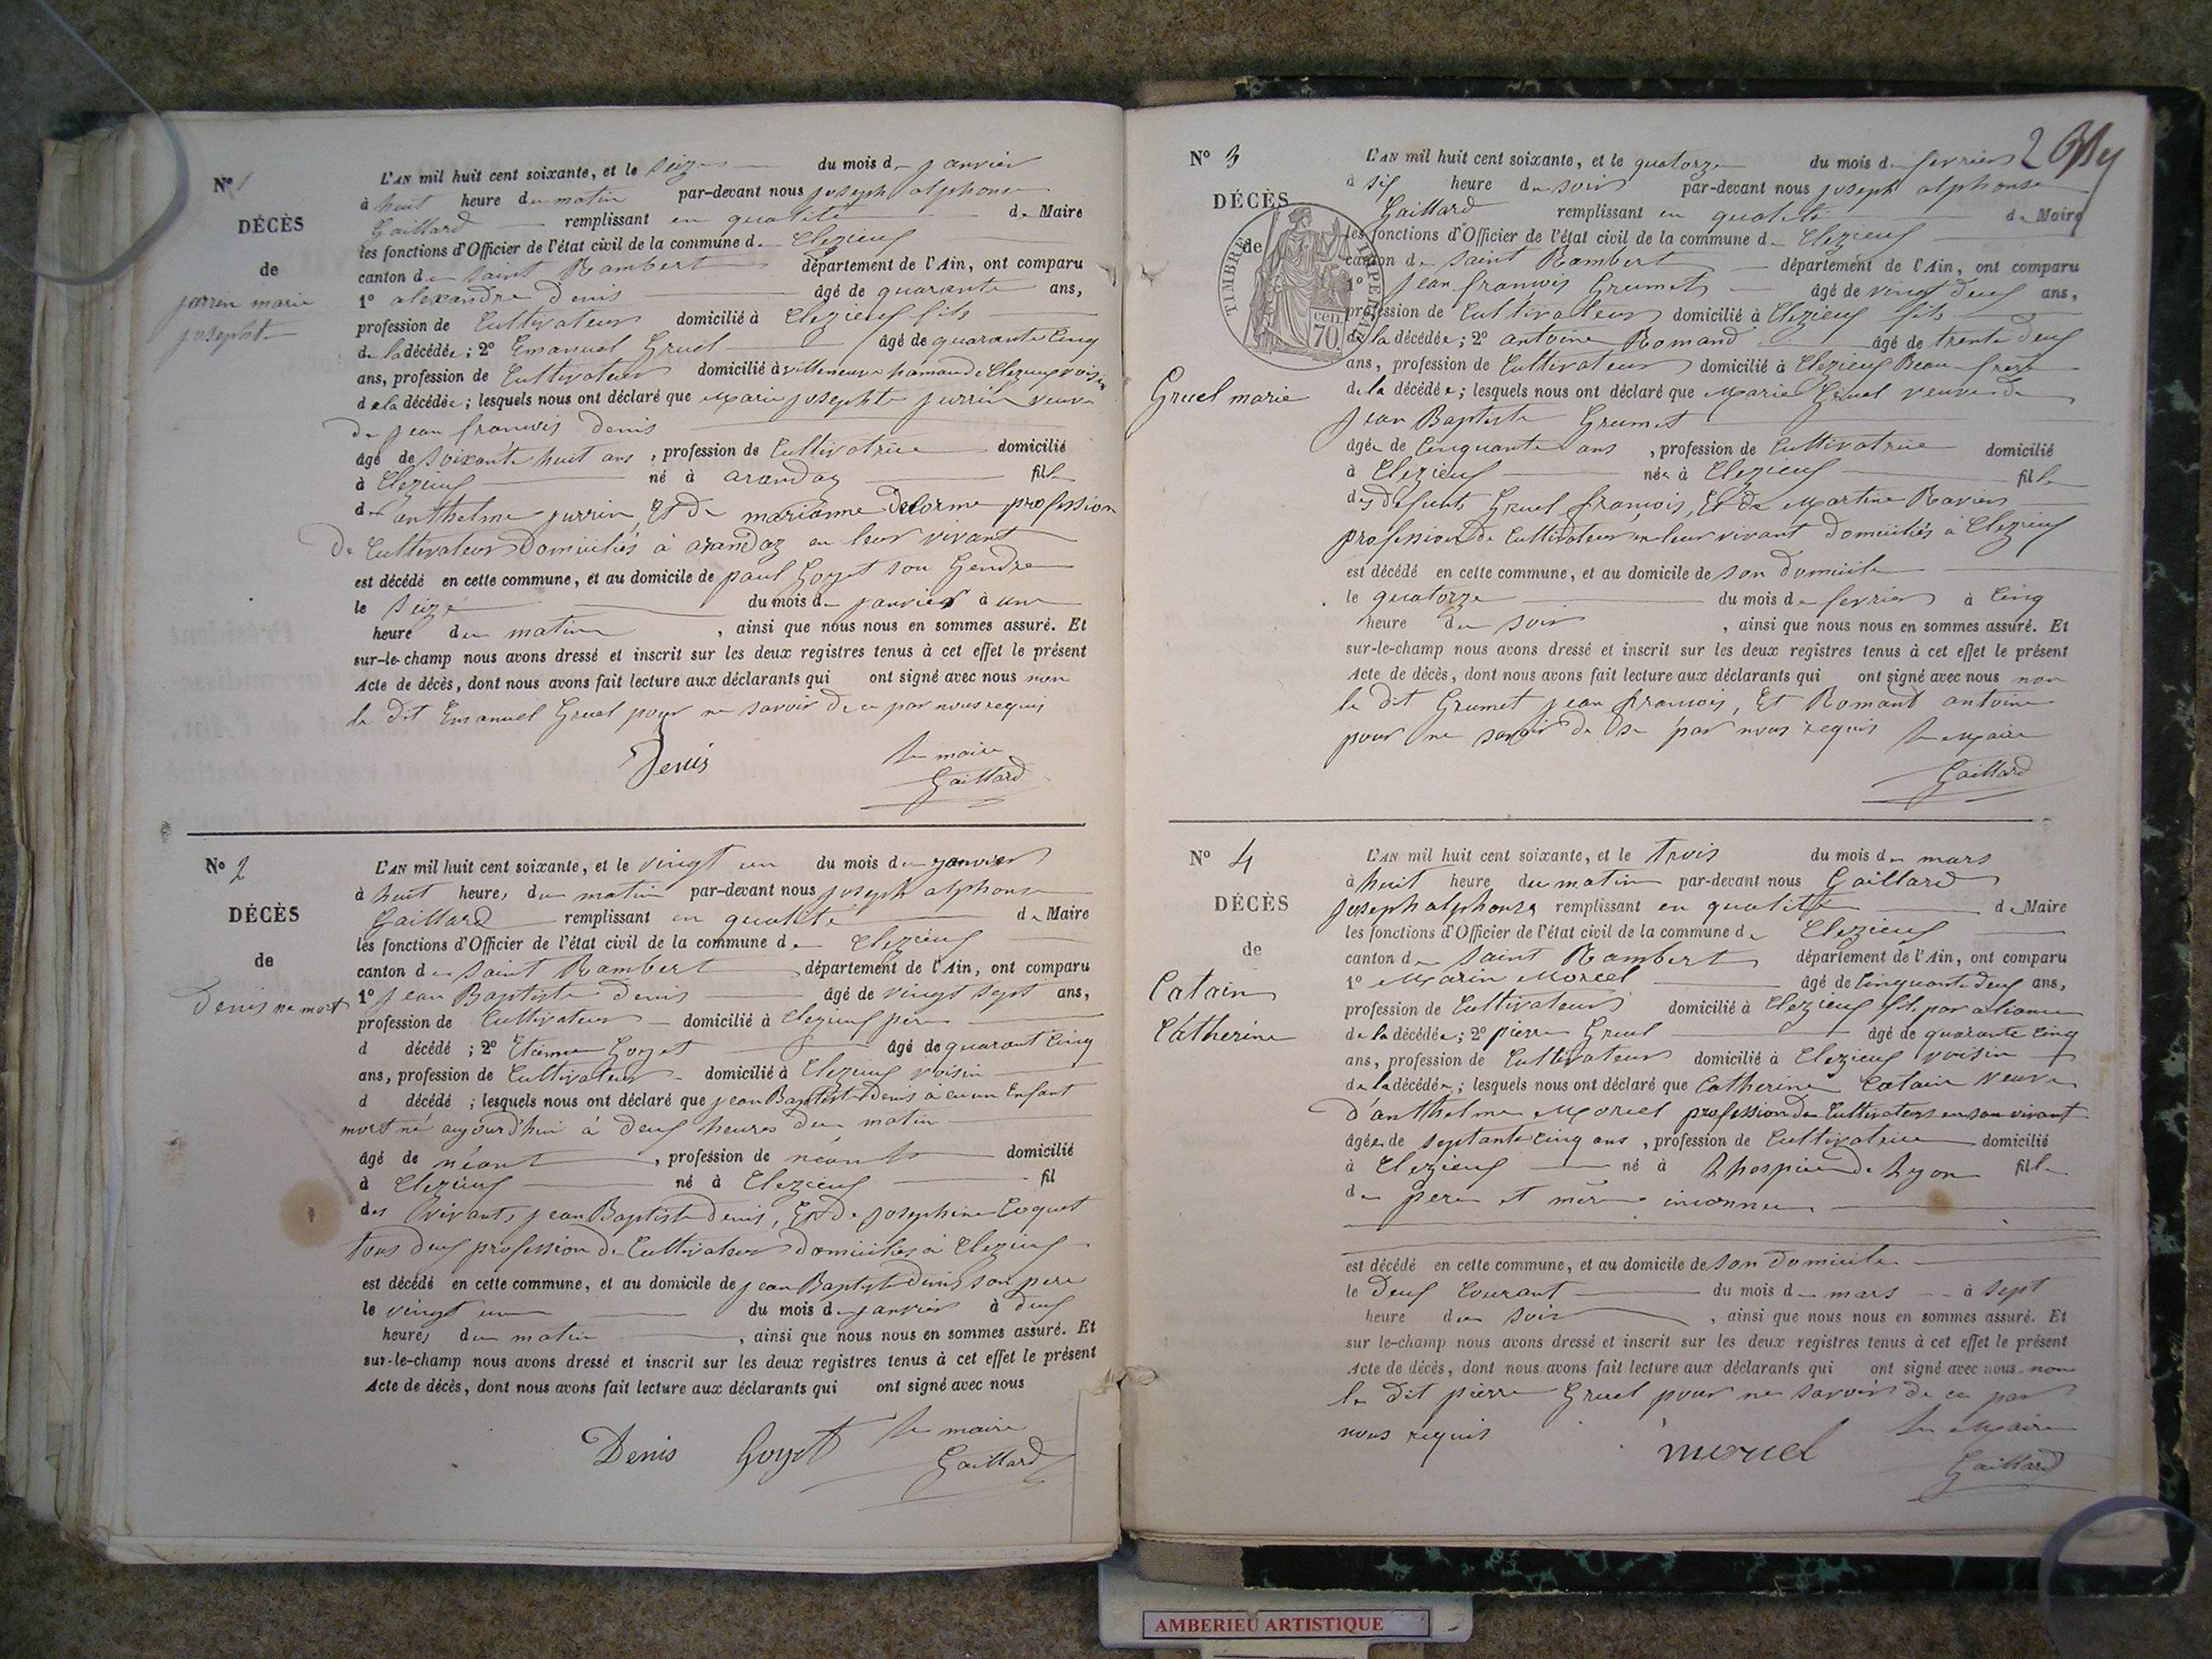 N° 1
DÉCÈS
de
jurrin marie
josephte
L'AN mil huit cent soixante, et le seize du mois de janvier
à huit heure du matin par-devant nous joseph alphonse
Gaillard remplissant en qualité de Maire
les fonctions d'Officier de l'état civil de la commune de Clezieuf
canton de saint Rambert département de l'Ain, ont comparu
1° alexandre denis âgé de quarante ans,
profession de Cultivateur domicilié à Clezieuf fils
de la décédée; 2° Emanuel Gruel âgé de quarante Cinq
ans, profession de Cultivateur domicilié à villeneuve hamau de Clezieuf voisin
de la décédée; lesquels nous ont déclaré que Marie josephte jurrin veuve
De jean francois denis
âgé de soixante huit ans, profession de Cultivatrice domicilié
à Clezieuf né à arandaz fille
de anthelme jurrin, Et de marianne Delorme profession
De Cultivateur Domiciliés à arandaz en leur vivant
est décédé en cette commune, et au domicile de paul Goyet son Gendre
le seize du mois de janvier à une
heure du matin, ainsi que nous nous en sommes assuré. Et
sur-le-champ nous avons dressé et inscrit sur les deux registres tenus à cet effet le présent
Acte de décès, dont nous avons fait lecture aux déclarants qui ont signé avec nous non
le dit Emanuel Gruel pour ne savoir de ce par nous requis
Denis
Le maire
Gaillard
N° 2
DÉCÈS
de
Denis né mort
L'AN mil huit cent soixante, et le vingt un du mois de janvier
à huit heures du matin par-devant nous joseph alphonse
Gaillard remplissant en qualité de Maire
les fonctions d'Officier de l'état civil de la commune de Clezieuf
canton de saint Rambert département de l'Ain, ont comparu
1° Jean Baptiste denis âgé de vingt sept ans,
profession de Cultivateur domicilié à Clezieuf pere
d décédé; 2° Etienne Goyet âgé de quarant Cinq
ans, profession de Cultivateur domicilié à Clezieuf voisin
d décédé; lesquels nous ont déclaré que jean Baptiste denis à eu un Enfant
mort né aujourd'hui à deux heures du matin
âgé de néant, profession de néant domicilié
à Clezieuf né à Clezieuf fil
des vivants jean Baptiste denis, Et de josephine Coquet
tous deux profession de Cultivateur domiciliés à Clezieuf
est décédé en cette commune, et au domicile de jean Baptiste denis son pere
le vingt un du mois de janvier à deux
heures du matin, ainsi que nous nous en sommes assuré. Et
sur-le-champ nous avons dressé et inscrit sur les deux registres tenus à cet effet le présent
Acte de décès, dont nous avons fait lecture aux déclarants qui ont signé avec nous
Denis Goyet Le maire
Gaillard
N° 3
DÉCÈS
de
TIMBRE IMPERIAL
70 cen.
Gruel marie
L'AN mil huit cent soixante, et le quatorze du mois de fevrier
à six heure du soir par-devant nous joseph alphonse
Gaillard remplissant en qualité de Maire
les fonctions d'Officier de l'état civil de la commune de Clezieuf
canton de saint Rambert département de l'Ain, ont comparu
1° Jean françois Grumet âgé de vingt deux ans,
profession de Cultivateur domicilié à Clezieuf fils
de la décédée; 2° antoine Romand âgé de trente deux
ans, profession de Cultivateur domicilié à Clezieuf Beau frere
de la décédée; lesquels nous ont déclaré que Marie Gruel veuve de
Jean Baptiste Grumet
âgée de Cinquante ans, profession de Cultivatrice domicilié
à Clezieuf née à Clezieuf fille
des défunts Gruel françois, Et de Martine Ravier
profession de Cultivateur en leur vivant Domiciliés à Clezieuf
est décédé en cette commune, et au domicile de son domicile
le quatorze du mois de fevrier à Cinq
heure du soir, ainsi que nous nous en sommes assuré. Et
sur-le-champ nous avons dressé et inscrit sur les deux registres tenus à cet effet le présent
Acte de décès, dont nous avons fait lecture aux déclarants qui ont signé avec nous non
le dit Grumet jean francois, Et Romand antoine
pour ne savoir de ce par nous requis Le Maire
Gaillard
N° 4
DÉCÈS
de
Catain
Catherine
L'AN mil huit cent soixante, et le trois du mois de mars
à huit heure du matin par-devant nous Gaillard
joseph alphonse remplissant en qualité de Maire
les fonctions d'Officier de l'état civil de la commune de Clezieuf
canton de saint Rambert département de l'Ain, ont comparu
1° Marin Morcel âgé de Cinquante deux ans,
profession de Cultivateur domicilié à Clezieuf fils par aliance
de la décédée; 2° pierre Gruel âgé de quarante Cinq
ans, profession de Cultivateur domicilié à Clezieuf voisin
de la décédée; lesquels nous ont déclaré que Catherine Catain veuve
d'anthelme Morcel profession de Cultivateur en son vivant
âgée de septante Cinq ans, profession de Cultivatrice domicilié
à Clezieuf né à Lhospice de Lyon fille
de pere et mere inconnu
est décédé en cette commune, et au domicile de son domicile
le deux Courant du mois de mars à sept
heure du soir, ainsi que nous nous en sommes assuré. Et
sur le-champ nous avons dressé et inscrit sur les deux registres tenus à cet effet le présent
Acte de décès, dont nous avons fait lecture aux déclarants qui ont signé avec nous non
le dit pierre Gruel pour ne savoir de ce par
nous requis
morcel
Le Maire
Gaillard
AMBERIEU ARTISTIQUE